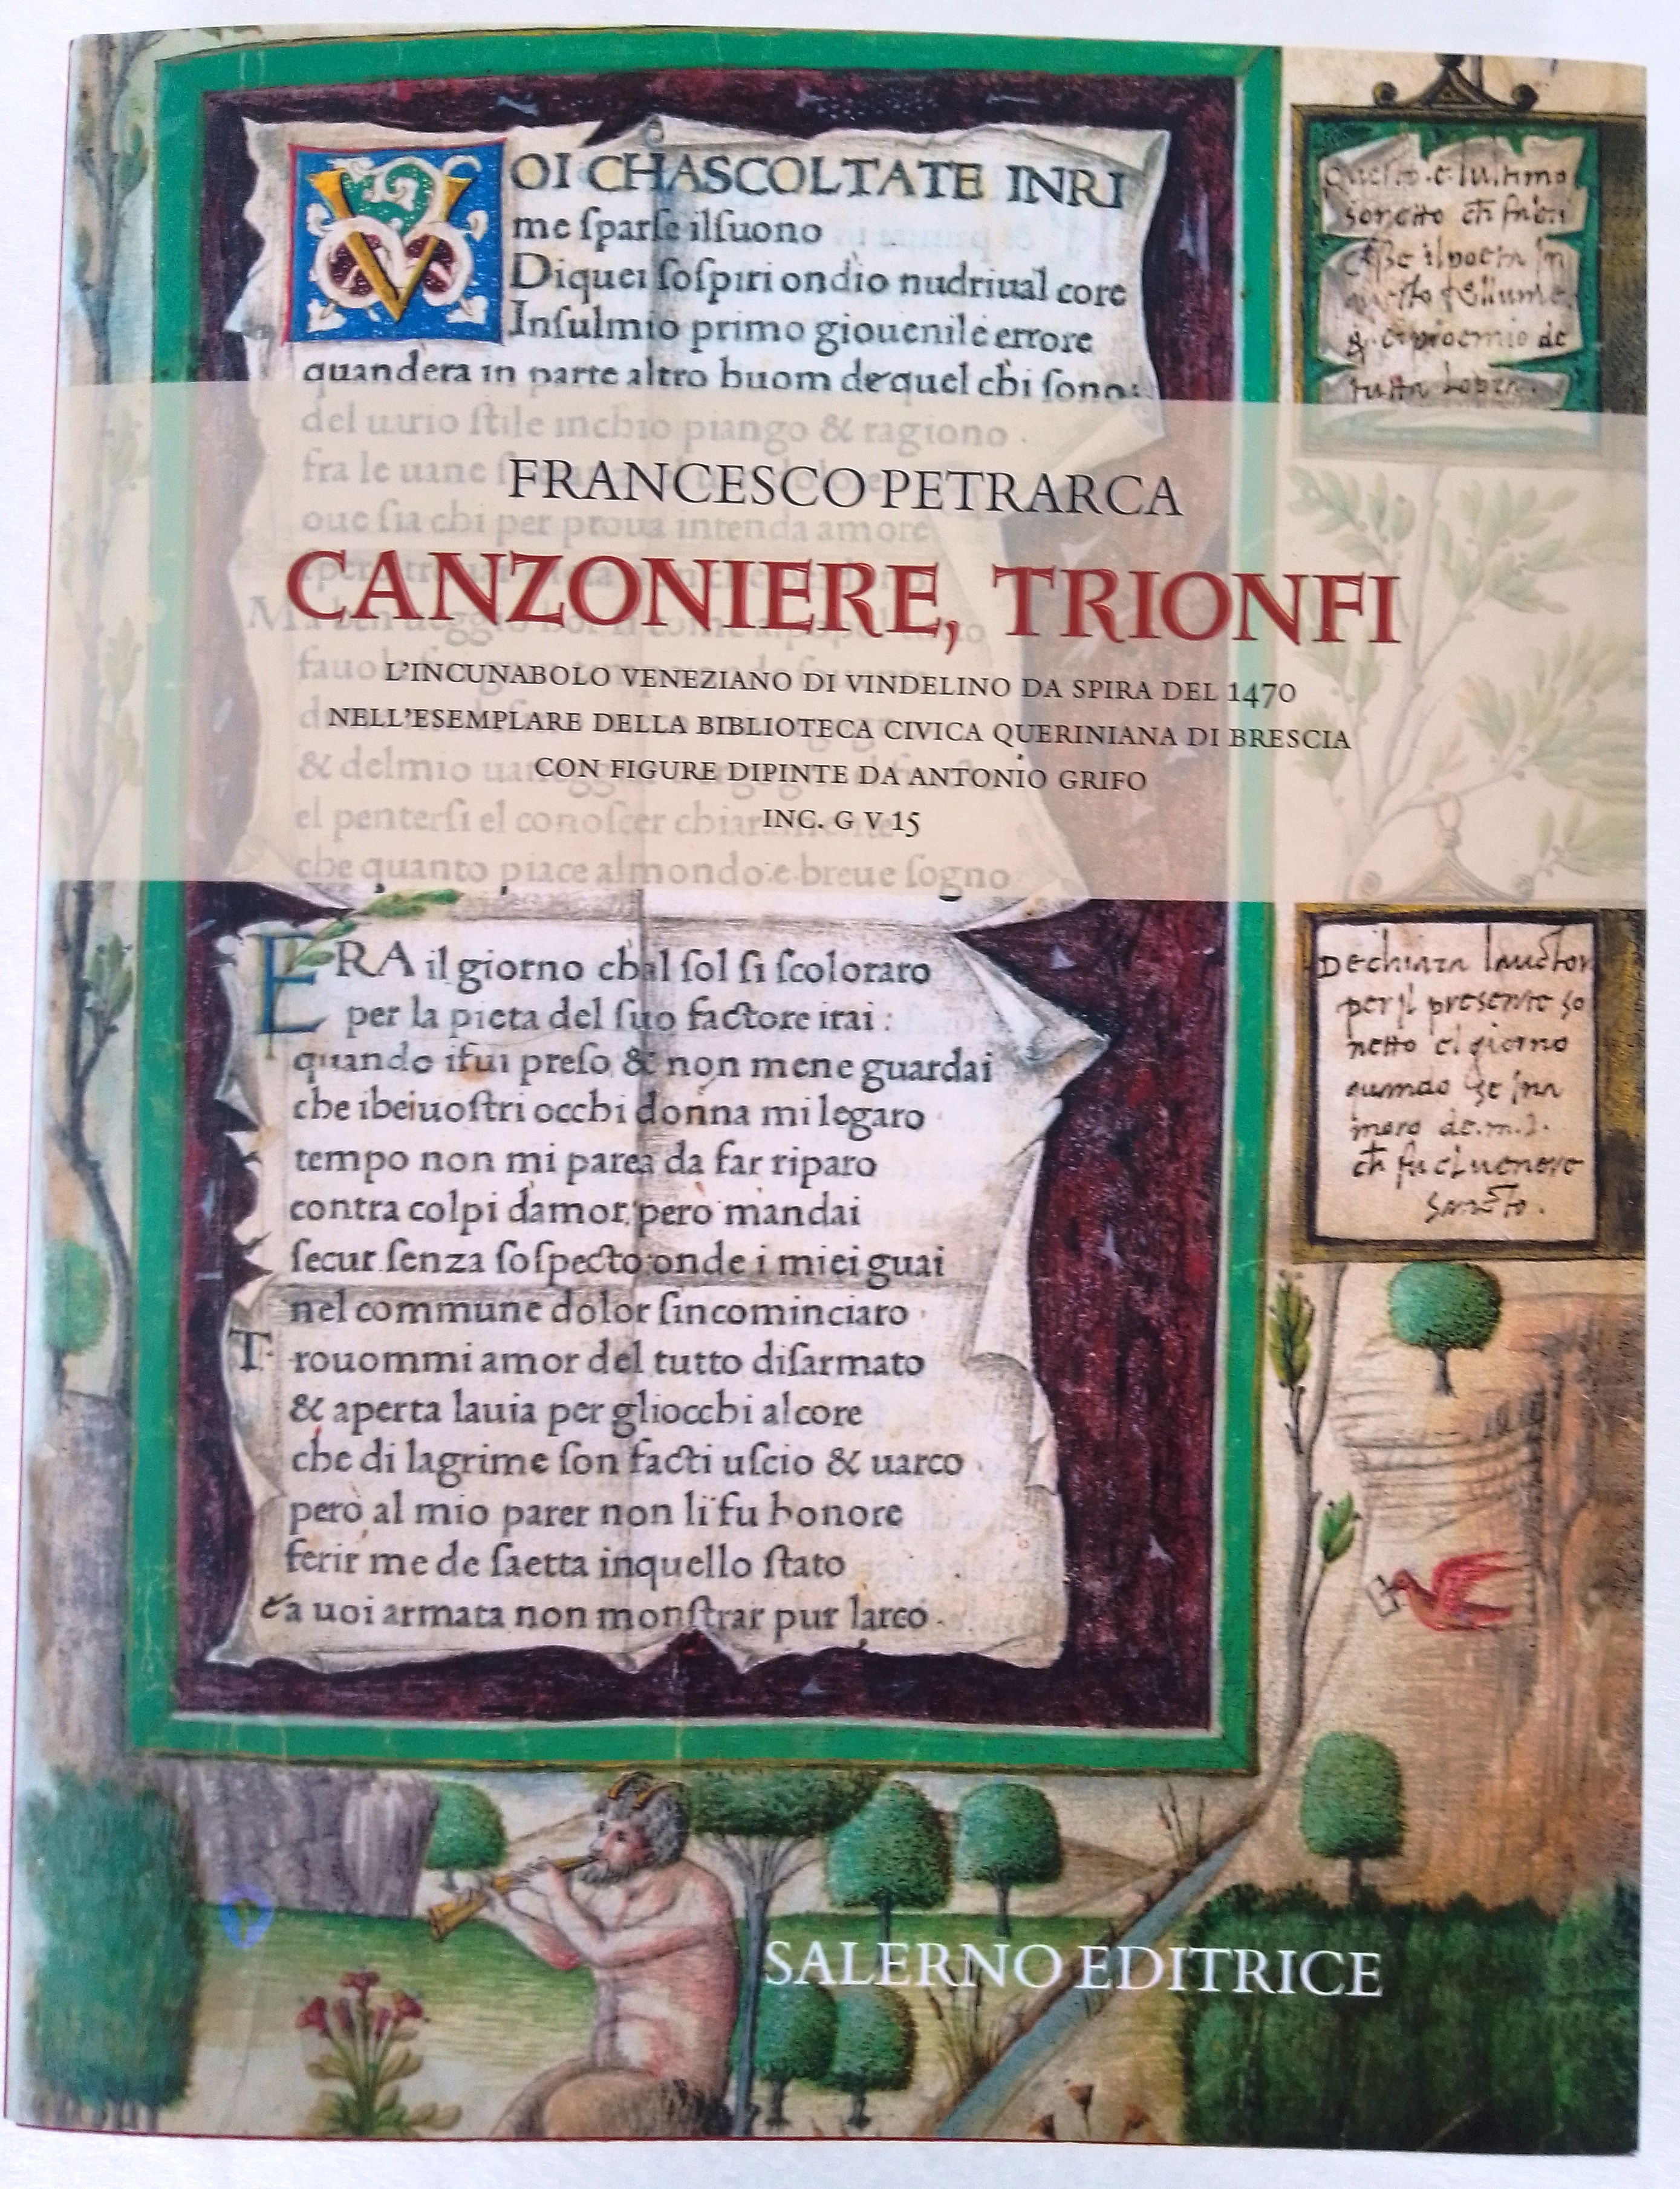 VOI CHASCOLTATE INRI
me ſparſe ilſuono
Diquei ſoſpiri ondio nudriual core
Inſulmio primo giouenile errore
quandera in parte altro huom dequel chi ſono:
del uario ſtile inchio piango & ragiono .
fra le uane
FRANCESCO PETRARCA
oue ſia chi per proua intenda amore
CANZONIERE, TRIONFI
L'INCUNABOLO VENEZIANO DI VINDELINO DA SPIRA DEL 1470
NELL'ESEMPLARE DELLA BIBLIOTECA CIVICA QUERINIANA DI BRESCIA
& delmio
CON FIGURE DIPINTE DA ANTONIO GRIFO
el penterſi el conoſcer
INC. G V 15
che quanto piace almondo.e.breue ſogno
ERA il giorno chal ſol ſi ſcoloraro
per la pieta del ſuo factore irai :
quando ifui preſo & non mene guardai
che ibeiuoſtri occhi donna mi legaro
tempo non mi parea da far riparo
contra colpi damor, però mandai
ſecur ſenza ſoſpecto:onde i miei guai
nel commune dolor ſincominciaro
Trouommi amor del tutto diſarmato
& aperta lauia per gliocchi alcore
che di lagrime ſon facti uſcio & uarco
però al mio parer non li fu honore
ferir me de ſaetta inquello ſtato
& a uoi armata non monſtrar pur larco .
Questo .e. lultimo
sonetto
il poeta in
& el proemio de
tutta lopera .
Dechiara lauctor
per il presente so
netto el giorno
quando se ina
moro de.m.l.
ch fu el uenere
sancto .
SALERNO EDITRICE